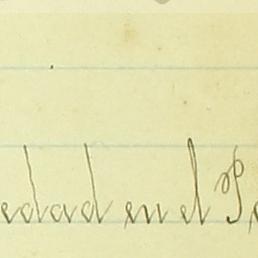 edad en el Pe